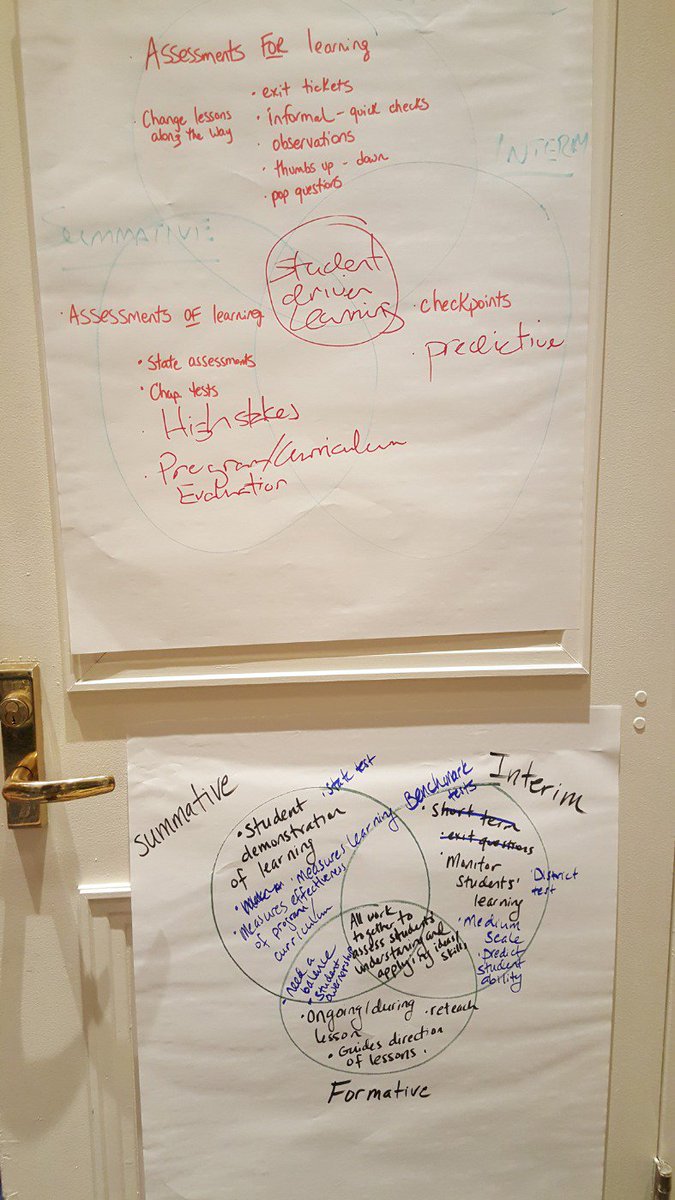 Assessments FOR learning
• exit tickets
Change lessons
along the way
• informal - quick checks
• observations
• thumbs up - down
• pop questions
INTERIM
SUMMATIVE
Student
driven
Learning
• Assessments OF learning
• State assessments
• Chap. tests
• High stakes
• Program/Curriculum
Evaluation
• checkpoints
• predictive
Summative
• State test
• Student
demonstration
of learning
• Measures learning
• Measures effectiveness
of program/
curriculum
Benchmark
tests
Interim
• Short term
• exit questions
• Monitor
students'
learning
• District
test
• Medium
Scale
• Predict
student
ability
All work
together to
assess students'
understanding and
applying ideas/
skills
• need a
balance
• Student
ownership
• Ongoing/during
lesson
• reteach
• Guides direction
of lessons.
Formative